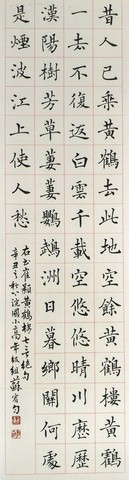 昔人已乘黃鶴去此地空餘黃鶴樓黃鶴
一去不復返白雲千載空悠悠晴川歷歷
漢陽樹芳草萋萋鸚鵡洲日暮鄉關何處
是煙波江上使人愁
右書崔顥黃鶴樓七言絕句
辛丑之秋於浣園小高年級組蘇